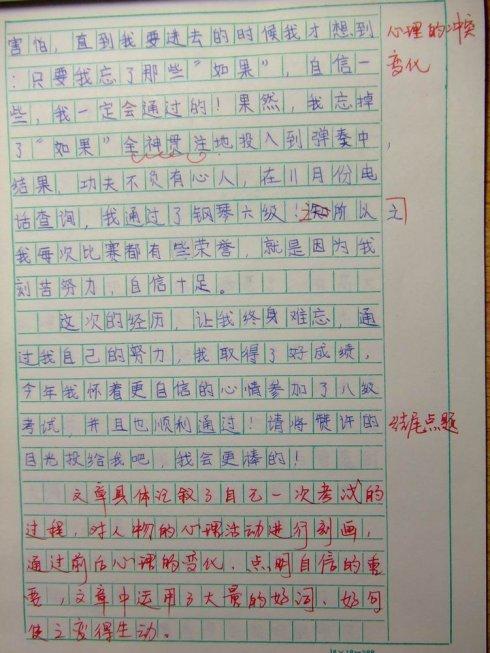 害怕，直到我要进去的时候我才想到
心理的冲突
变化
：只要我忘了那些“如果”，自信一
些，我一定会通过的！果然，我忘掉
了“如果”全神贯注地投入到弹奏中，
结果，功夫不负有心人，在11月份电
话查询，我通过了钢琴六级！所以
之
我每次比赛都有些荣誉，就是因为我
刻苦努力，自信十足。
这次的经历，让我终身难忘，通
过我自己的努力，我取得了好成绩，
今年我怀着更自信的心情参加了八级
考试，并且也顺利通过！请将赞许的
结尾点题
目光投给我吧，我会更棒的！
文章具体记叙了自己一次考试的
过程，对人物的心理活动进行刻画，
通过前后心理的变化，点明自信的重
要，文章中运用了大量的好词、好句
使之变得生动。